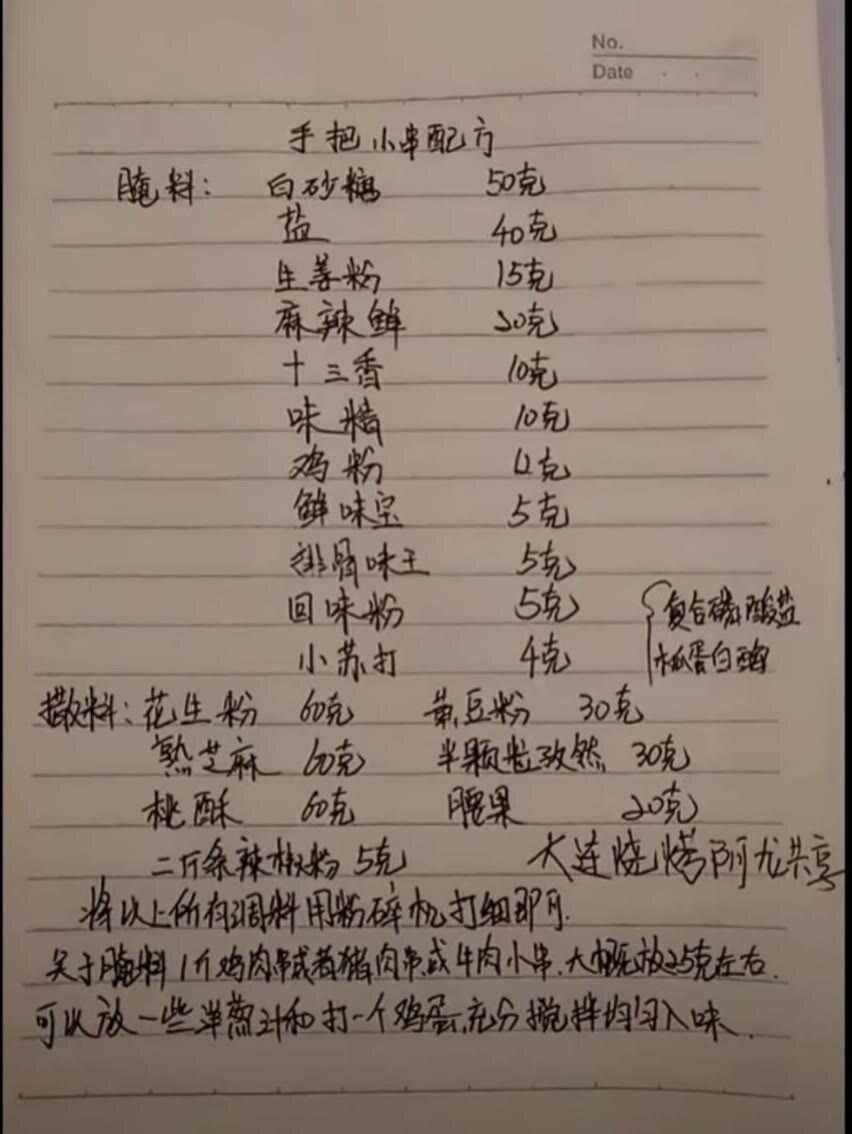 No.
Date
手把小串配方
腌料: 白砂糖 50克
盐 40克
生姜粉 15克
麻辣鲜 20克
十三香 10克
味精 10克
鸡粉 12克
鲜味宝 5克
排骨味王 5克
回味粉 5克 复合磷酸盐
小苏打 4克 木瓜蛋白酶
撒料: 花生粉 60克 黄豆粉 30克
熟芝麻 60克 半颗粒孜然 30克
桃酥 60克 腰果 20克
二斤条辣椒粉 5克 大连烧烤阿龙共享
将以上所有调料用粉碎机打细即可.
关于腌料1斤鸡肉串或者猪肉串或牛肉小串.大概放25克左右.
可以放一些洋葱汁和打一个鸡蛋,充分搅拌均匀入味.